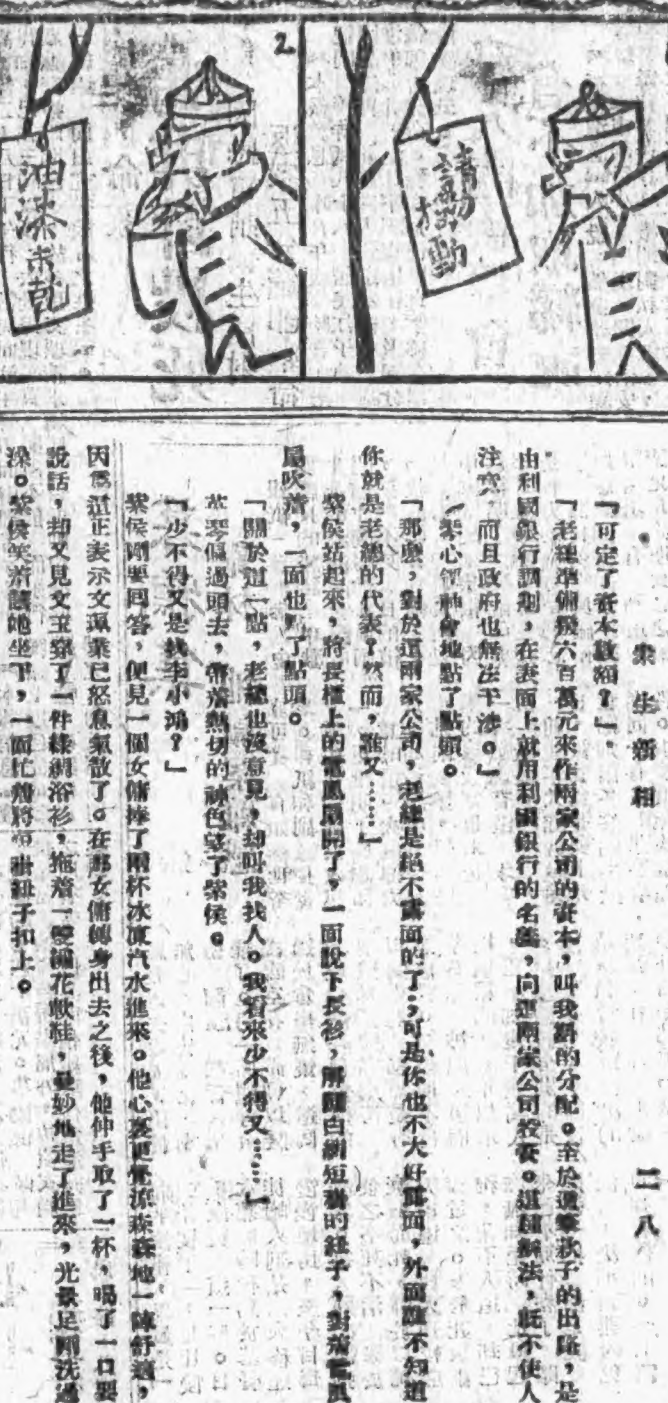 請勿搖動
2
油漆未乾
衆生新相
二八
「可定了資本數額？」
「老總準備撥六百萬元來作兩家公司的資本，叫我斟的分配。至於這筆款子的出路，是
由利國銀行調劃，在表面上就用利國銀行的名義，向這兩家公司投資。這種辦法，旣不使人
注意，而且政府也無法干涉。」
心領神會地點了點頭。
「那麽，對於這兩家公司，老總是絕不露面的了；可是你也不大好露面，外面誰不知道
你就是老總的代表？然而，誰又……」
紫侯站起來，將長櫃上的電風扇開了，一面脫下長衫，解開白綢短褂的鈕子，對着電風
扇吹着，一面也點了點頭。
「關於這一點，老總也沒意見，却叫我找人。我看來少不得又……」
琴偏過頭去，帶着熱切的神色望了紫侯。
「少不得又是找李小鴻？」
紫侯剛要回答，便見一個女傭捧了兩杯冰凍汽水進來。他心裏更覺涼森森地一陣舒適，
因爲這正表示文琴業已怒意氣散了。在那女傭轉身出去之後，他伸手取了一杯，喝了一口要
說話，却又見文玉穿了一件綠綢浴衫，拖着一雙繡花軟鞋，曼妙地走了進來，光景是剛洗過
澡。紫侯笑着讓她坐下，一面忙着將短褂鈕子扣上。